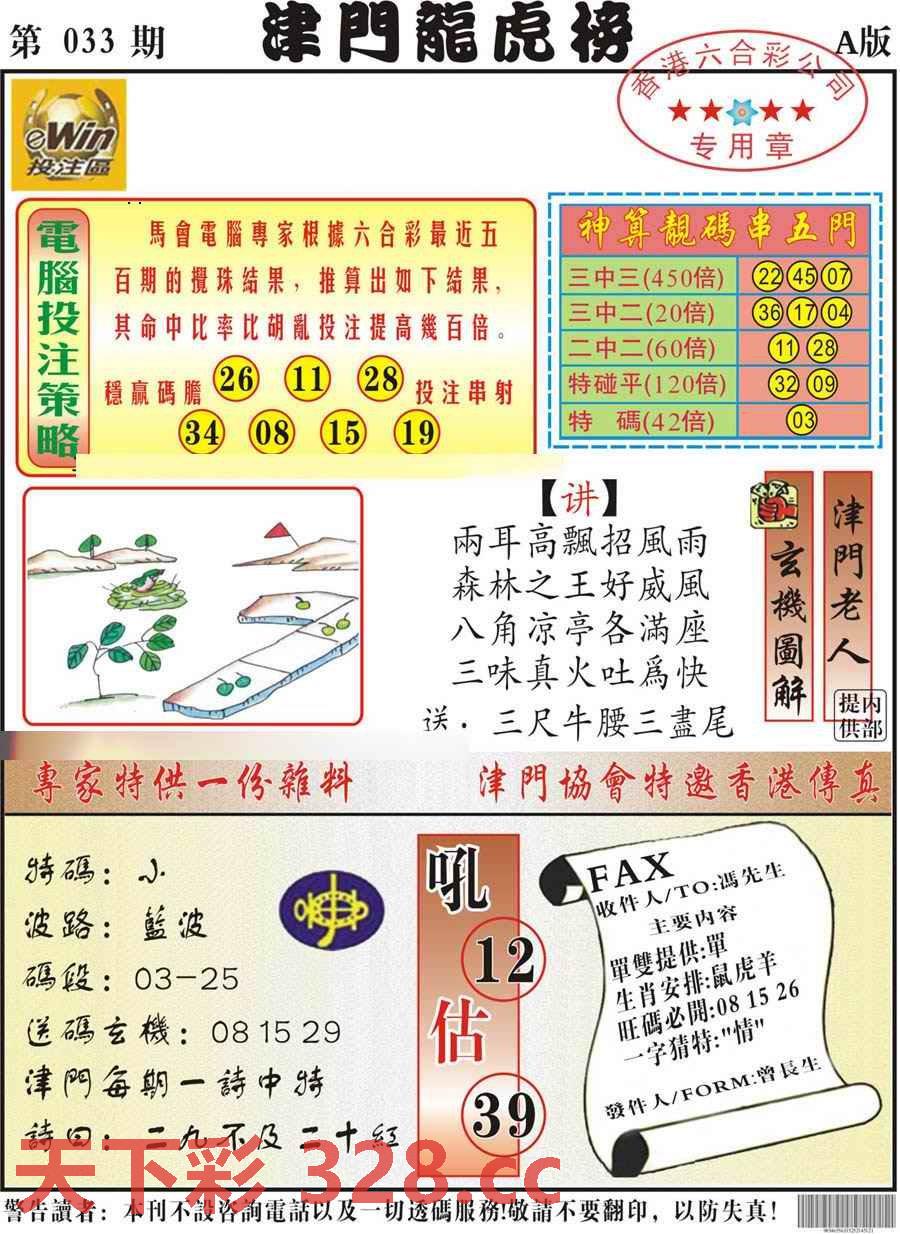 第 033 期
津門龍虎榜
A版
香港六合彩公司
专用章
eWin
投注區
電腦投注策略
馬會電腦專家根據六合彩最近五
百期的攪珠結果，推算出如下結果，
其命中比率比胡亂投注提高幾百倍。
穩贏碼膽 26 11 28 投注串射
34 08 15 19
神算靚碼串五門
三中三(450倍) 22 45 07
三中二(20倍) 36 17 04
二中二(60倍) 11 28
特碰平(120倍) 32 09
特 碼(42倍) 03
【讲】
兩耳高飄招風雨
森林之王好威風
八角凉亭各滿座
三味真火吐爲快
送：三尺牛腰三盡尾
玄機圖解
津門老人
内部提供
專家特供一份雜料
津門協會特邀香港傳真
特碼：小
波路：藍波
碼段：03-25
送碼玄機：08 15 29
津門每期一詩中特
詩曰：二九不及二十紅
吼
12
估
39
FAX
收件人/TO:馮先生
主要内容
單雙提供:單
生肖安排:鼠虎羊
旺碼必開:08 15 26
一字猜特:"情"
發件人/FORM:曾長生
天下彩 328.cc
警告讀者：本刊不設咨詢電話以及一切透碼服務!敬請不要翻印，以防失真！